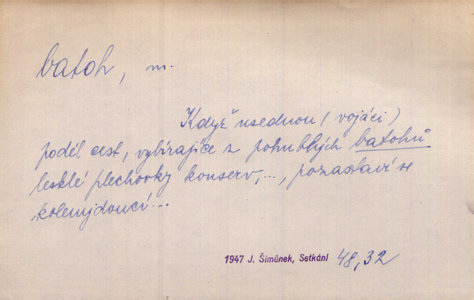 batoh, m.
Když usednou (vojáci)
podél cest, vybírajíce z pohublých batohů
lesklé plechovky konserv,..., pozastaví se
kolemjdoucí...
1947 J. Šimůnek, Setkání 48,32